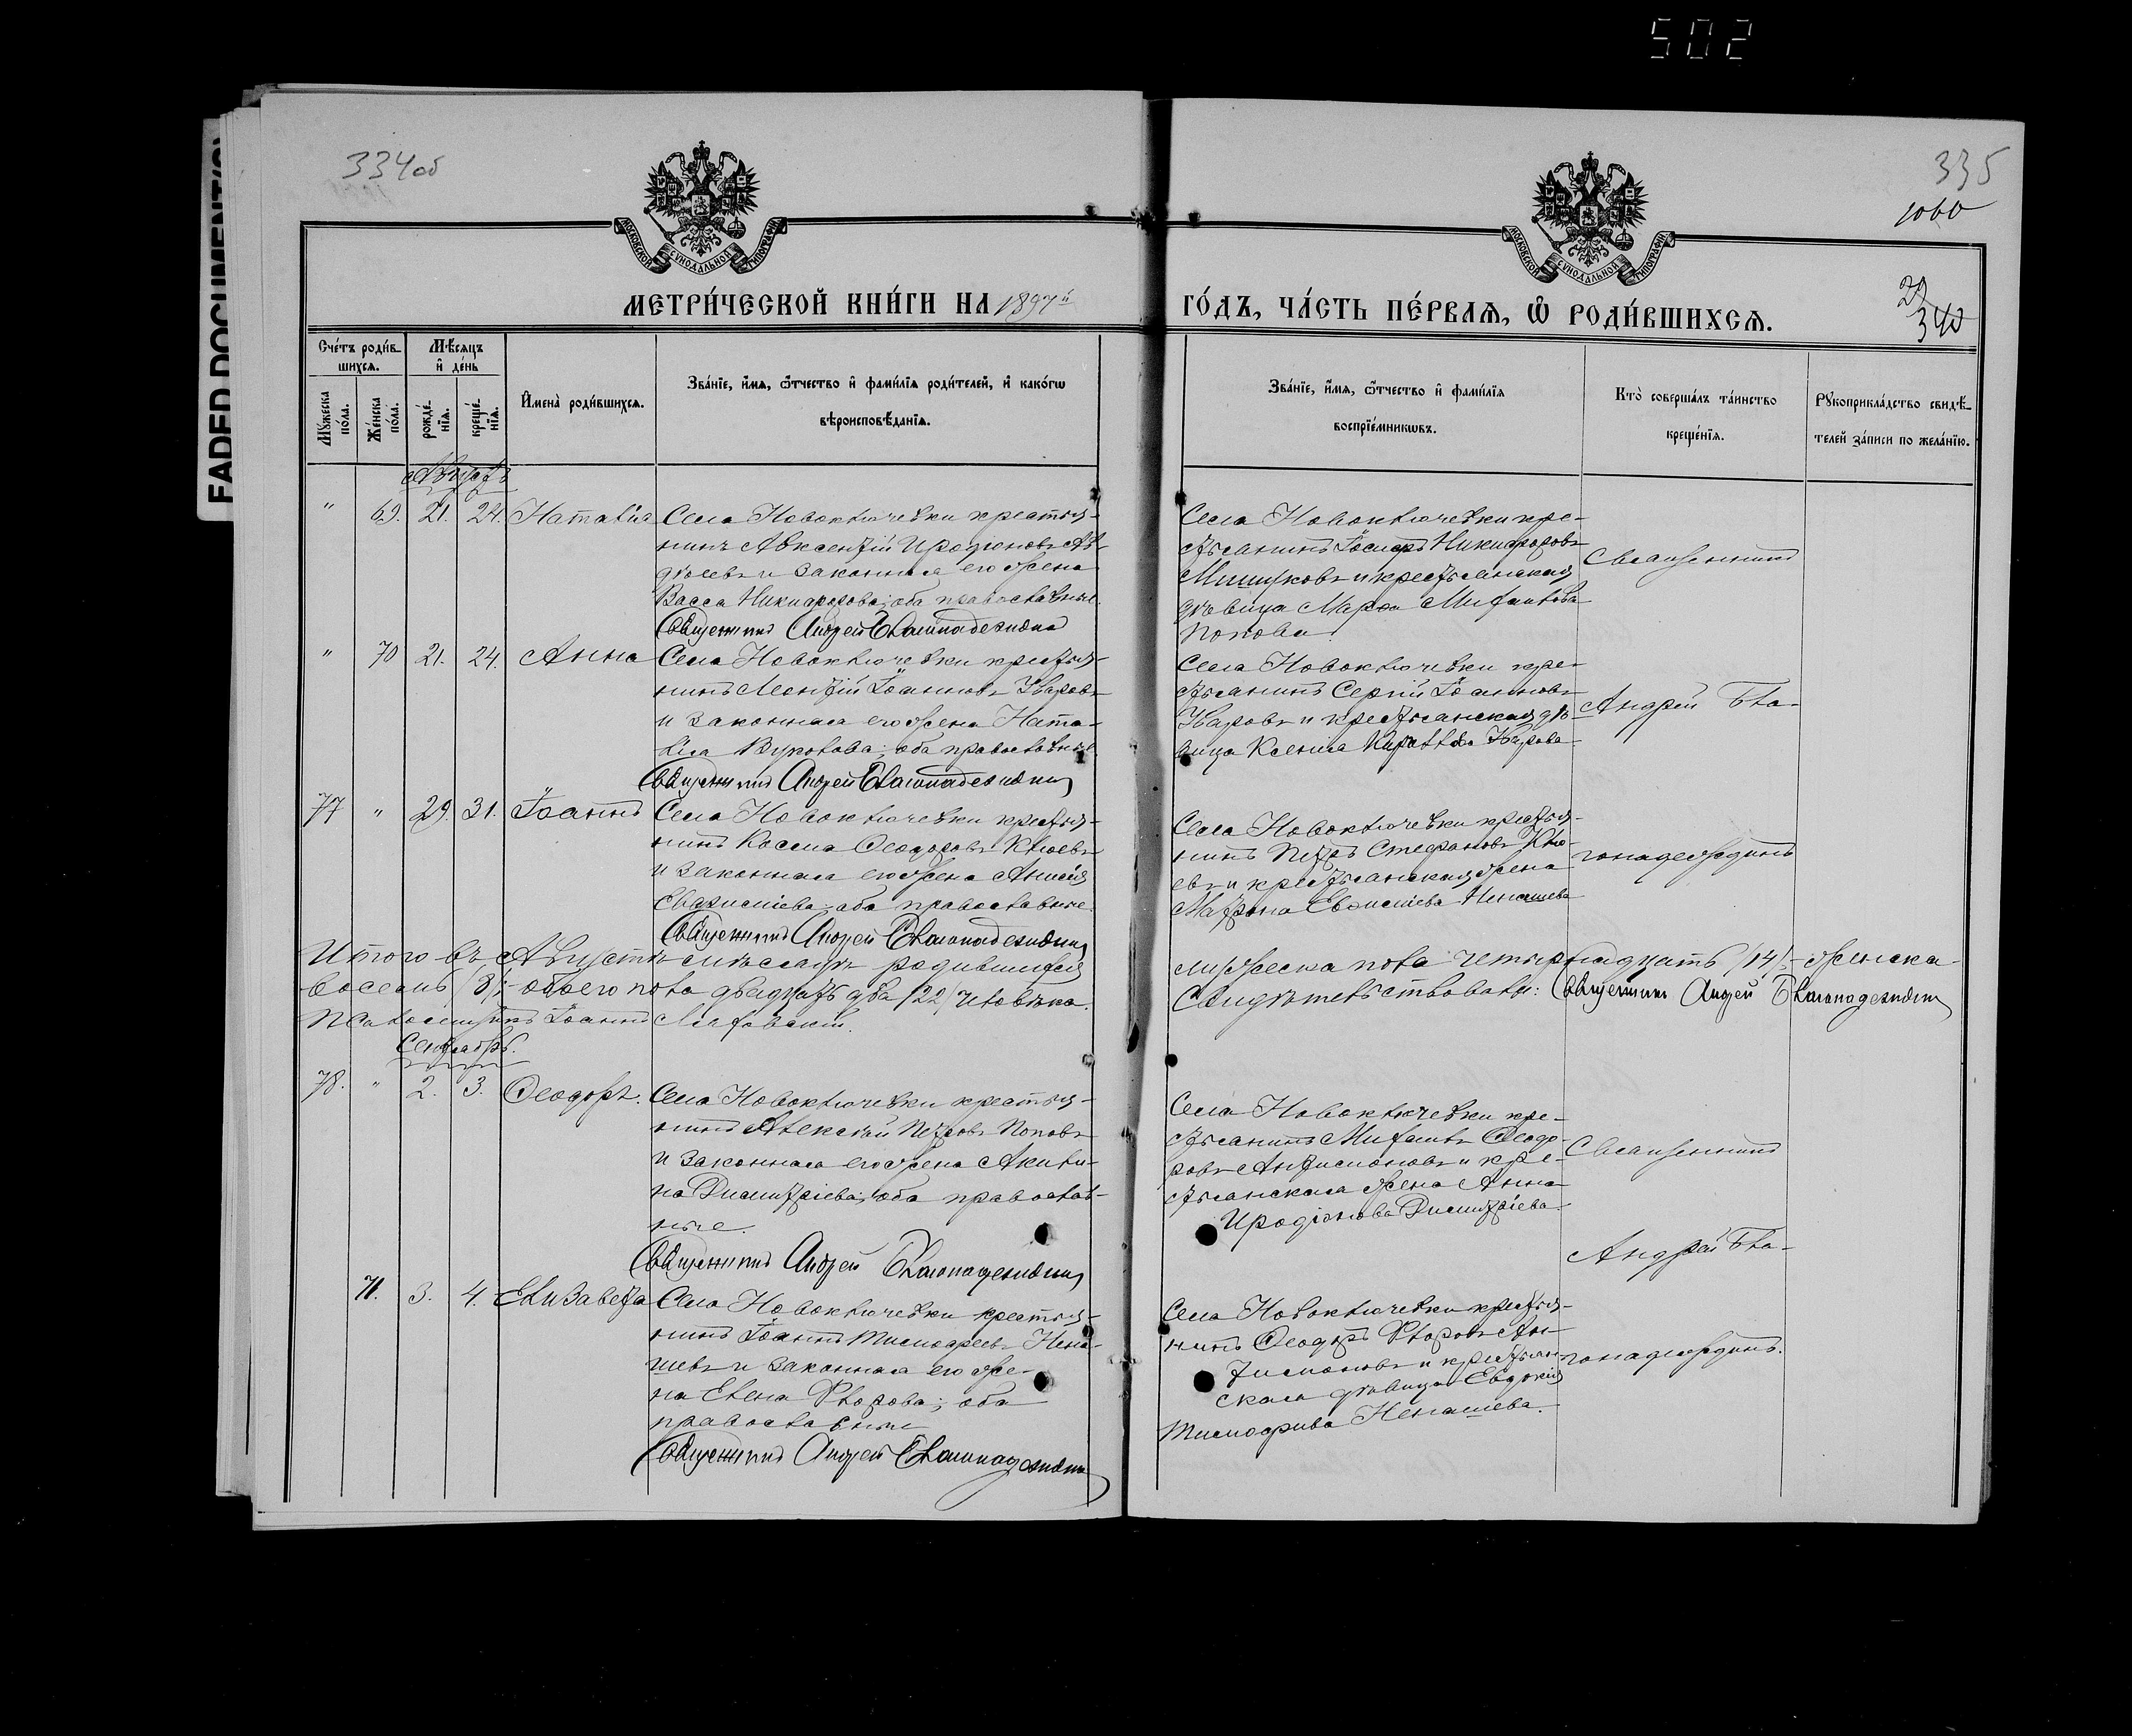 502
FADED DOCUMENT(S)
334об
335
1060
МОСКОВСКОЙ СѴНОДАЛЬНОЙ ТИПОГРАФІИ
МОСКОВСКОЙ СѴНОДАЛЬНОЙ ТИПОГРАФІИ
МЕТРИ́ЧЕСКОЙ КНИ́ГИ НА 1897й
ГО́ДЪ, ЧА́СТЬ ПЕ́РВАЯ, Ѡ РОДИ́ВШИХСЯ.
29
340
Сче́тъ роди́в-
шихся.
Мѣ́сяцъ
и҆ де́нь
Мꙋ́жеска
по́ла.
Же́нска
по́ла.
рожде́-
нїя.
креще́-
нїя.
И҆мена̀ роди́вшихся.
Зва́нїе, и҆́мя, ѻ҆́тчество и҆ фами́лїя роди́телей, и҆ како́гѡ
вѣроисповѣ́данїя.
Зва́нїе, и҆́мя, ѻ҆́тчество и҆ фами́лїя
воспрїе́мникѡвъ.
Кто̀ соверша́лъ та́инство
креще́нїя.
Рꙋкоприкла́дство свидѣ́-
телей за́писи по жела́нїю.
Августъ
" 69. 21. 24. Наталія Села Новоключевки крестья-
нинъ Авксентій Иродіоновъ Ав-
дѣевъ и законная его жена
Васса Никифорова; оба православные.
Священникъ Андрей Благонадеждинъ
Села Новоключевки кре-
стьянинъ Іосифъ Никифоровъ
Мишуковъ и крестьянская
дѣвица Марѳа Михаилова
Попова.
Священникъ
" 70 21. 24. Анна Села Новоключевки крестья-
нинъ Леонтій Іоанновъ Уваровъ
и законная его жена Ната-
лія Вуколова; оба православные.
Священникъ Андрей Благонадеждинъ
Села Новоключевки кре-
стьянинъ Сергій Іоанновъ
Уваровъ и крестьянская дѣ-
вица Ксенія Кириллова Уварова.
Андрей Бла-
77 " 29. 31. Іоаннъ Села Новоключевки крестья-
нинъ Косма Ѳеодоровъ Клюевъ
и законная его жена Анисія
Евфиміева; оба православные.
Священникъ Андрей Благонадеждинъ
Села Новоключевки крестья-
нинъ Петръ Стефановъ Клю-
евъ и крестьянская жена
Матрона Евфиміева Ненашева
гонадеждинъ
Итого въ Августѣ мѣсяцѣ родившихся мужеска пола четырнадцать /14/,- женска
восемь /8/,- обоего пола двадцать два /22/ человѣка. Свидѣтельствовали: Священникъ Андрей Благонадеждинъ
Псаломщикъ Іоаннъ
Сентябрь.
78. " 2. 3. Ѳеодоръ. Села Новоключевки крестья-
нинъ Алексѣй Петровъ Поповъ
и законная его жена Акили-
на Димитріева; оба православ-
ные.
Священникъ Андрей Благонадеждинъ
Села Новоключевки кре-
стьянинъ Михаилъ Ѳеодо-
ровъ Антимоновъ и кре-
стьянская жена Анна
Иродіонова Димитріева
Священникъ
Андрей Бла-
71. 3. 4. Елизавета Села Новоключевки крестья-
нинъ Іоаннъ Тимофеевъ Нена-
шевъ и законная его же-
на Елена Флорова; оба
православные
Священникъ Андрей Благонадеждинъ
Села Новоключевки крестья-
нинъ Ѳеодоръ Флоровъ Ан-
тимоновъ и крестьян-
ская дѣвица Евдокія
Тимофеива Ненашева.
гонадеждинъ.